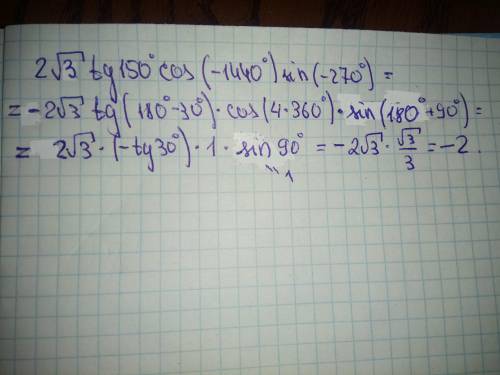 2√3 tg150° cos(-1440°) sin(-270°) =
= -2√3 tg(180°-30°)·cos(4·360°)·sin(180°+90°) =
= 2√3·(-tg30°)·1·sin90° = -2√3·√3/3 = -2.
"1